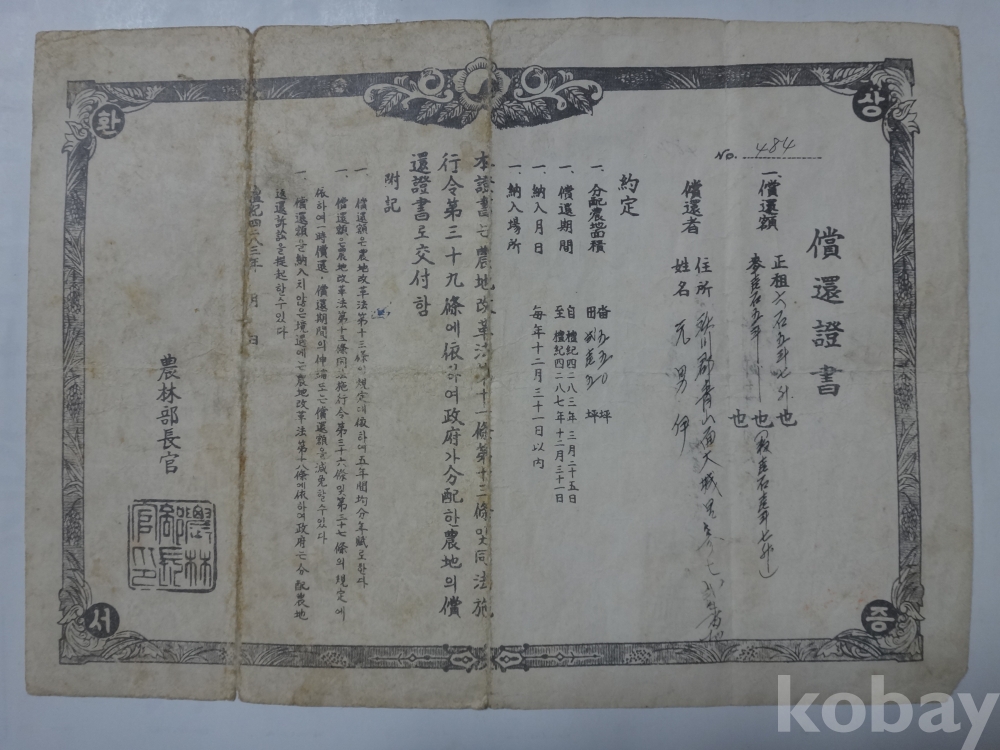 상환증서
No. 484
償還證書
一. 償還額 正租 六石五斗
也
也
也
償還者 住所
姓名 元男伊
約定
一. 分配農地面積 畓 五五〇 坪
田 坪
一. 償還期間 自 檀紀四二八三年 三月二十五日
至 檀紀四二八七年十二月三十一日
一. 納入月日 每年十二月三十一日以內
一. 納入場所
本證書는 農地改革法第十一條第十二條및同法施
行令第三十九條에依하여政府가分配한農地의償
還證書로交付함
附記
一. 償還額은農地改革法第十三條의規定에依하여五年間均分年賦로한다
一. 償還額은農地改革法第十五條同法施行令第三十六條및第三十七條의規定에
依하여一時償還·償還期間의伸縮또는償還額을減免할수있다
一. 償還額을納入치않은境遇에는農地改革法第十八條에依하여政府는分配農地
返還訴訟을提起할수있다
檀紀四二八三年 月 日
農林部長官
農林部長官印
kobay